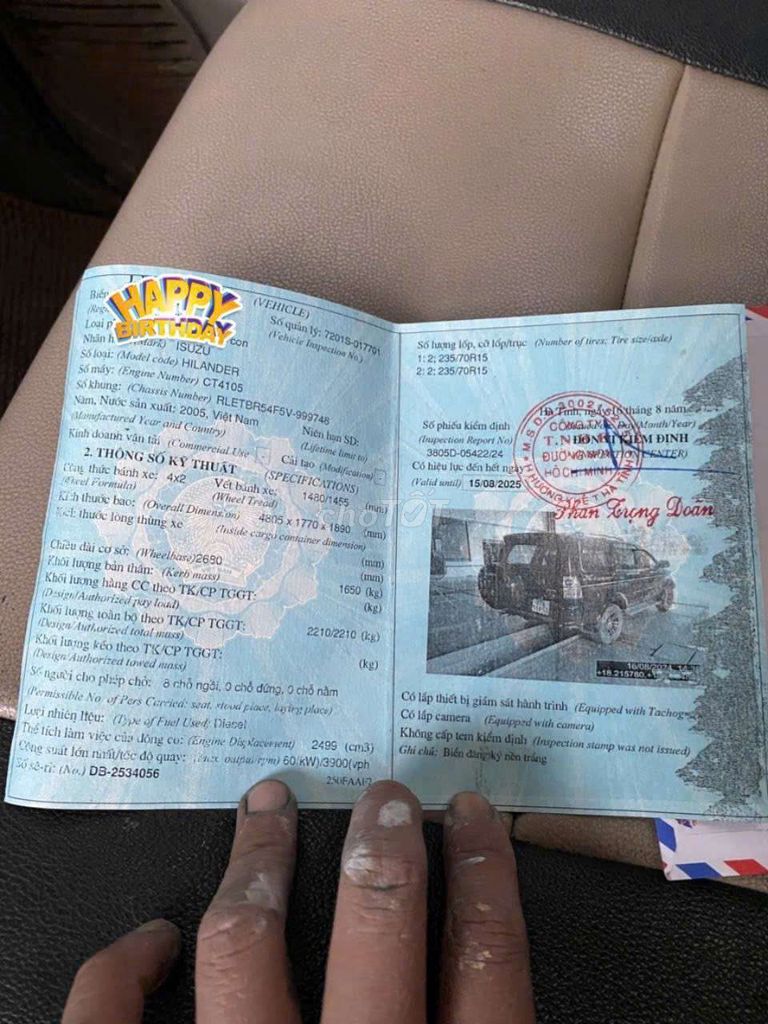 HAPPY
BIRTHDAY
(VEHICLE)
Biển
Số quản lý: 7201S-017701
(Vehicle Inspection No.)
Loại p
con
Nhãn h (Mark) ISUZU
Số loại: (Model code) HILANDER
Số máy: (Engine Number) CT4105
Số khung: (Chassis Number) RLETBR54F5V-999748
Năm, Nước sản xuất: 2005, Việt Nam
Niên hạn SD:
(Manufactured Year and Country)
(Lifetime limit to)
Kinh doanh vận tải (Commercial Use)
Cải tạo (Modification)
2. THÔNG SỐ KỸ THUẬT (SPECIFICATIONS)
Công thức bánh xe: 4x2
Vết bánh xe: 1480/1455 (mm)
(Wheel Formula)
(Wheel Tread)
Kích thước bao: (Overall Dimension) 4805 x 1770 x 1890 (mm)
Kích thước lòng thùng xe
(Inside cargo container dimension)
(mm)
Chiều dài cơ sở: (Wheelbase) 2680
(mm)
Khối lượng bản thân: (Kerb mass) 1650 (kg)
Khối lượng hàng CC theo TK/CP TGGT:
(Design/Authorized pay load)
(kg)
Khối lượng toàn bộ theo TK/CP TGGT: 2210/2210 (kg)
(Design/Authorized total mass)
Khối lượng kéo theo TK/CP TGGT: (kg)
(Design/Authorized towed mass)
Số người cho phép chở: 8 chỗ ngồi, 0 chỗ đứng, 0 chỗ nằm
(Permissible No of Pers Carried: seat, stood place, laying place)
Loại nhiên liệu: (Type of Fuel Used) Diesel
Thể tích làm việc của động cơ: (Engine Displacement) 2499 (cm3)
Công suất lớn nhất/tốc độ quay: (Max. output/rpm) 60/kW)/3900(vph
Số sê-ri: (No.) DB-2534056
Số lượng lốp, cỡ lốp/trục (Number of tires; Tire size/axle)
1: 2; 235/70R15
2: 2; 235/70R15
Hà Tĩnh, ngày 16 tháng 8 năm
Day/Month/Year)
Số phiếu kiểm định
(Inspection Report No)
3805D-05422/24
Có hiệu lực đến hết ngày
(Valid until) 15/08/2025
ĐƠN VỊ KIỂM ĐỊNH
CENTER)
CÔNG TY
T.N.H.H
ĐƯỜNG
HỒ CHÍ MINH
Phan Trọng Doãn
chợTỐT
16/08/2024
+18.215760,+
Có lắp thiết bị giám sát hành trình (Equipped with Tachog
Có lắp camera (Equipped with camera)
Không cấp tem kiểm định (Inspection stamp was not issued)
Ghi chú: Biển đăng ký nền trắng